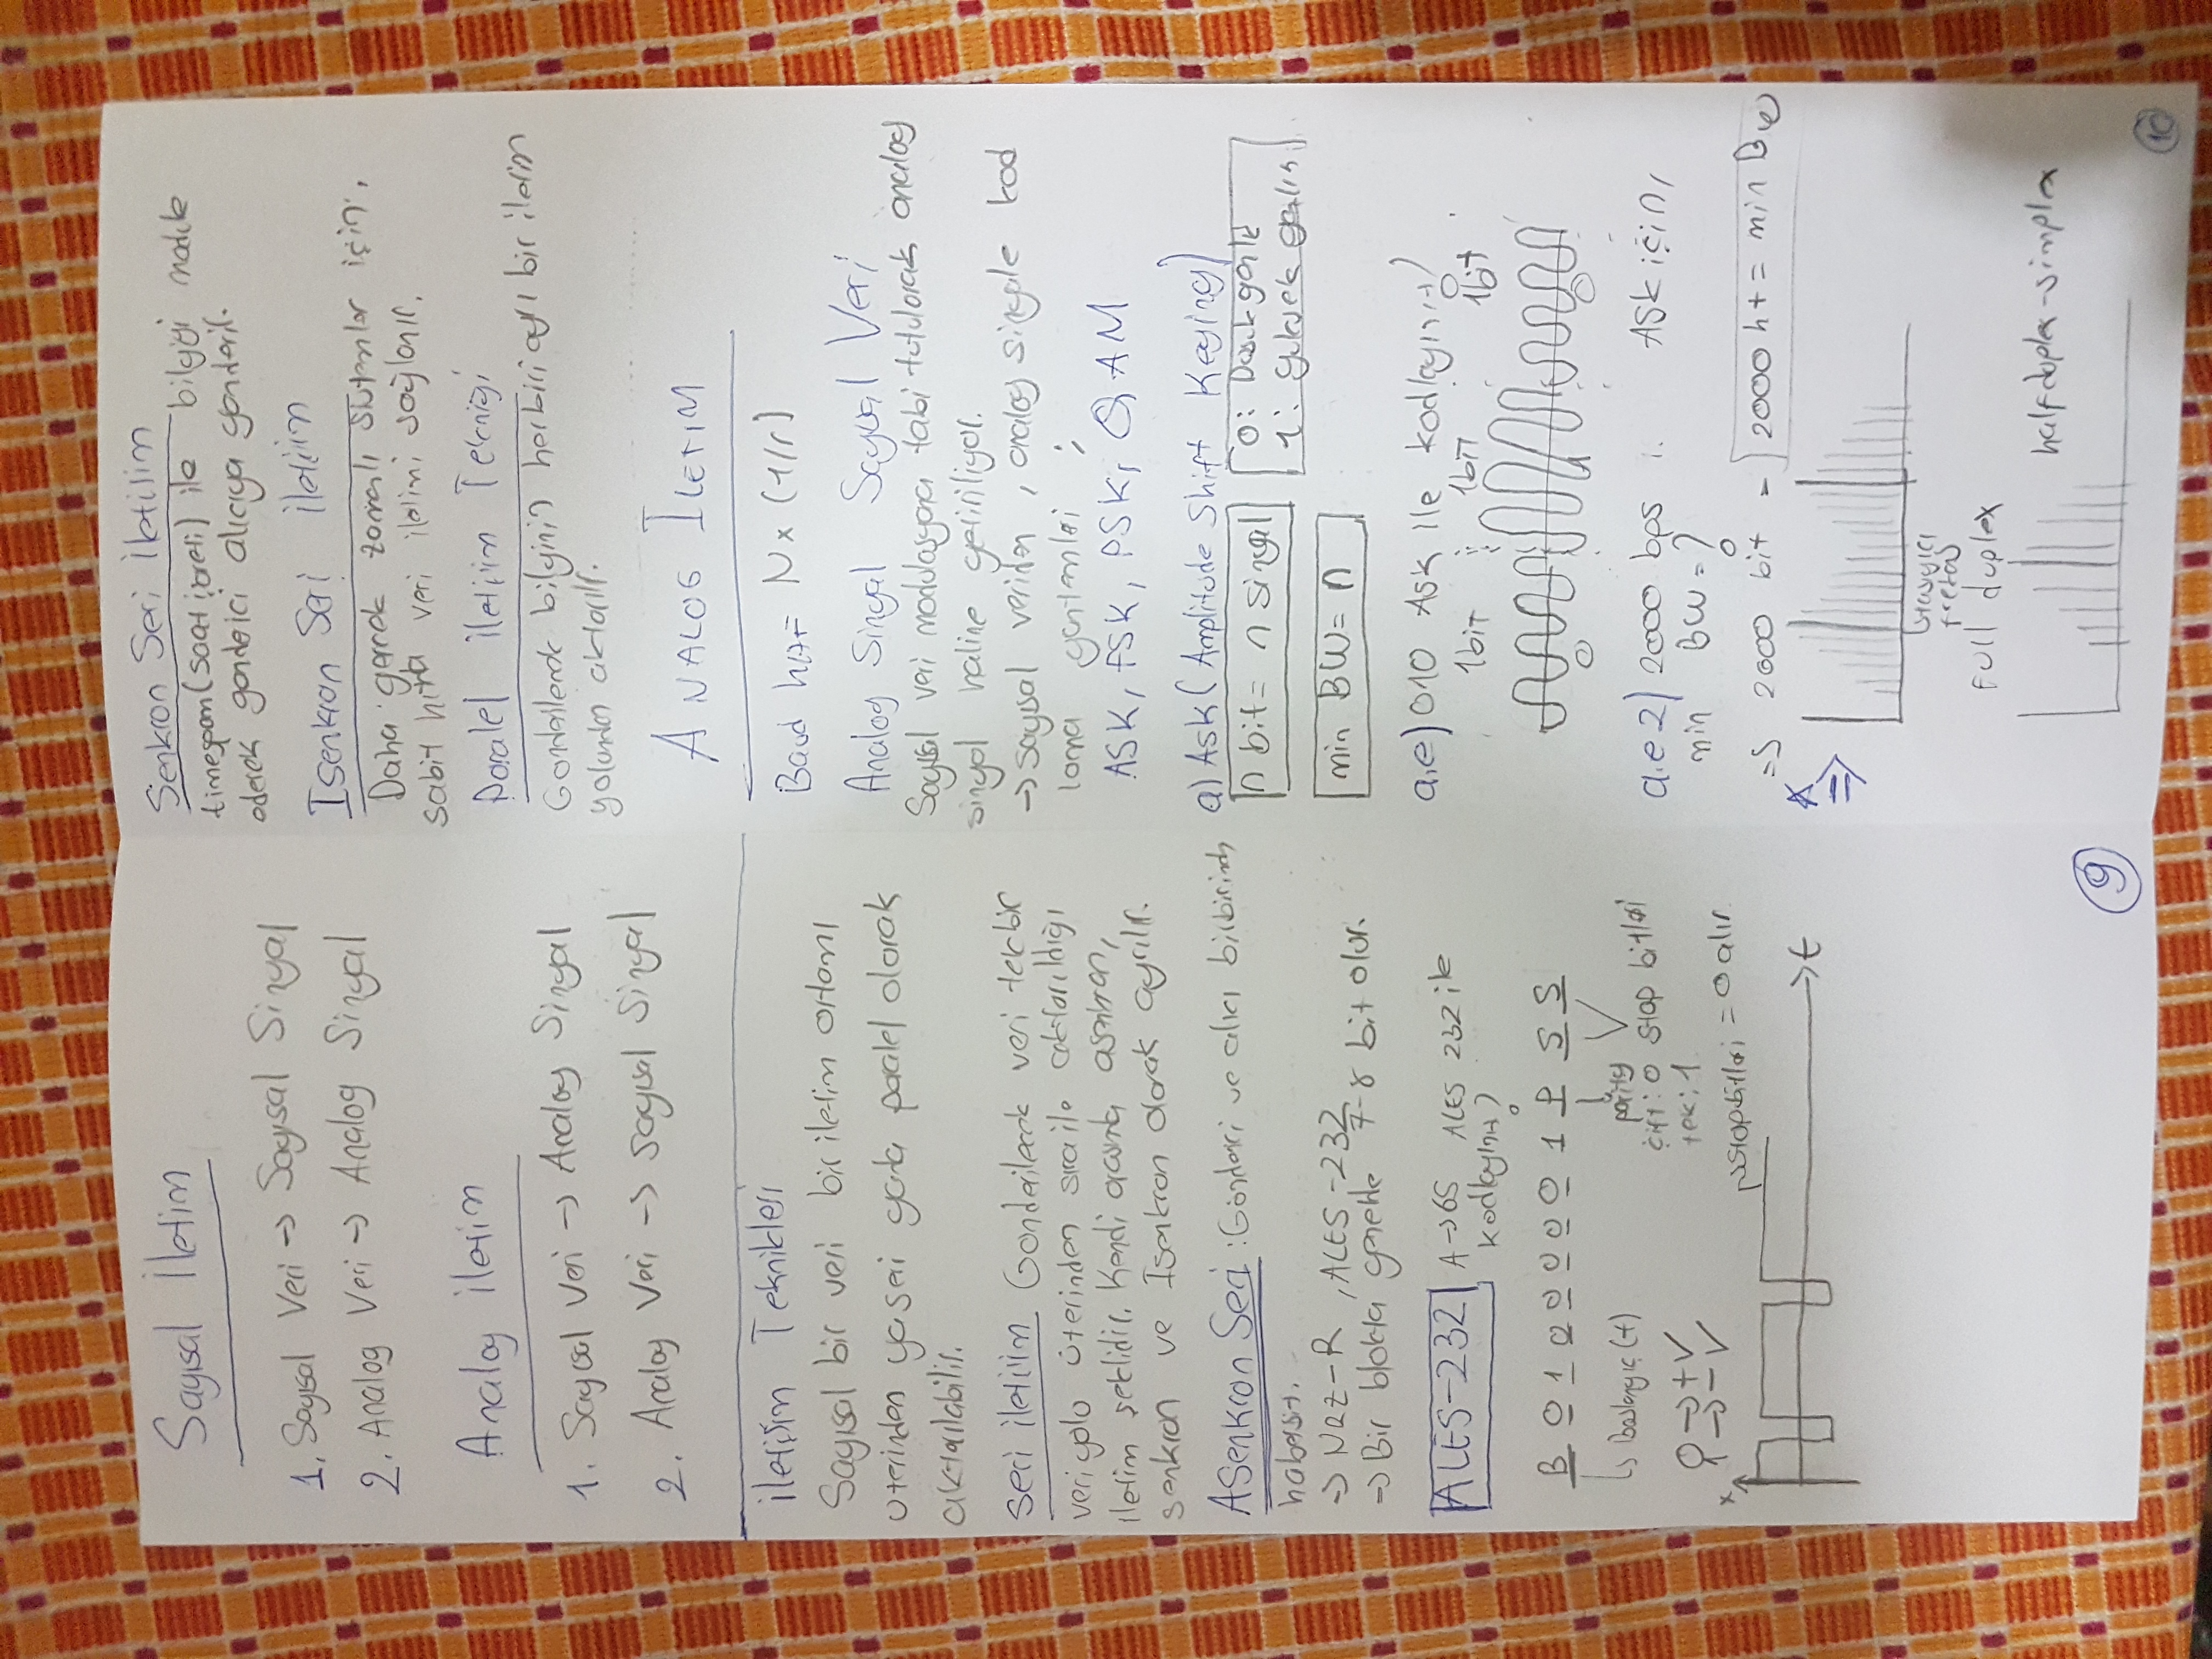 Sayısal İletim
1. Sayısal Veri -> Sayısal Sinyal
2. Analog Veri -> Analog Sinyal
Analog iletim
1. Sayısal Veri -> Analog Sinyal
2. Analog Veri -> Sayısal Sinyal
iletişim Teknikleri
Sayısal bir veri bir iletim ortamı
üzerinden ya seri yada paralel olarak
aktarılabilir.
Seri iletişim Gonderilecek veri tek bir
veri yolu üzerinden sıra ile aktarıldığı
iletim şeklidir. Kendi arasında asenkron,
senkron ve Isenkron olarak ayrılır.
ASenkron Seri : Gönderici ve alıcı birbirinden
habersiz.
-> NRZ-R , ALES-232
-> Bir blokta genelde 7-8 bit olur.
ALES-232 A->65 ALES 232 ile
kodlayınız?
B 0 1 0 0 0 0 0 1 P S S
Başlangıç (+)
parity
çift: 0 stop bitleri
tek: 1
0 -> + ✓
1 -> - ✓
stop bitleri = 0 alır.
x
t
9
Senkron Seri İletişim
timespan (saat işareti) ile bilgiyi modüle
ederek gonderici alıcıya gonderir.
Isenkron Seri iletişim
Daha gerçek zamanlı sistemler için,
sabit hızda veri iletimi sağlanır.
Paralel iletişim Tekniği
Gonderilecek bilginin herbiri ayrı bir iletim
yolundan aktarılır.
ANALOG İLETİM
Baud hızı= N x (1/r)
Analog Sinyal Sayısal Veri
Sayısal veri modulasyona tabi tutularak analog
sinyal haline getiriliyor.
-> sayısal veriden , analog sinyale kod
lama yöntemleri ;
ASK, FSK, PSK, QAM
a) ASK (Amplitude Shift Keying)
n bit = n sinyal
0: Düşük genlik
1: yüksek genlik
min BW= n
a.e) 010 ASK ile kodlayınız?
1bit 1bit 1bit
0 0
a.e 2) 2000 bps ASK için,
min BW = ?
=> 2000 bit = 2000 hz = min BW
=>
taşıyıcı
frekas
Full duplex
half duplex-simplex
10